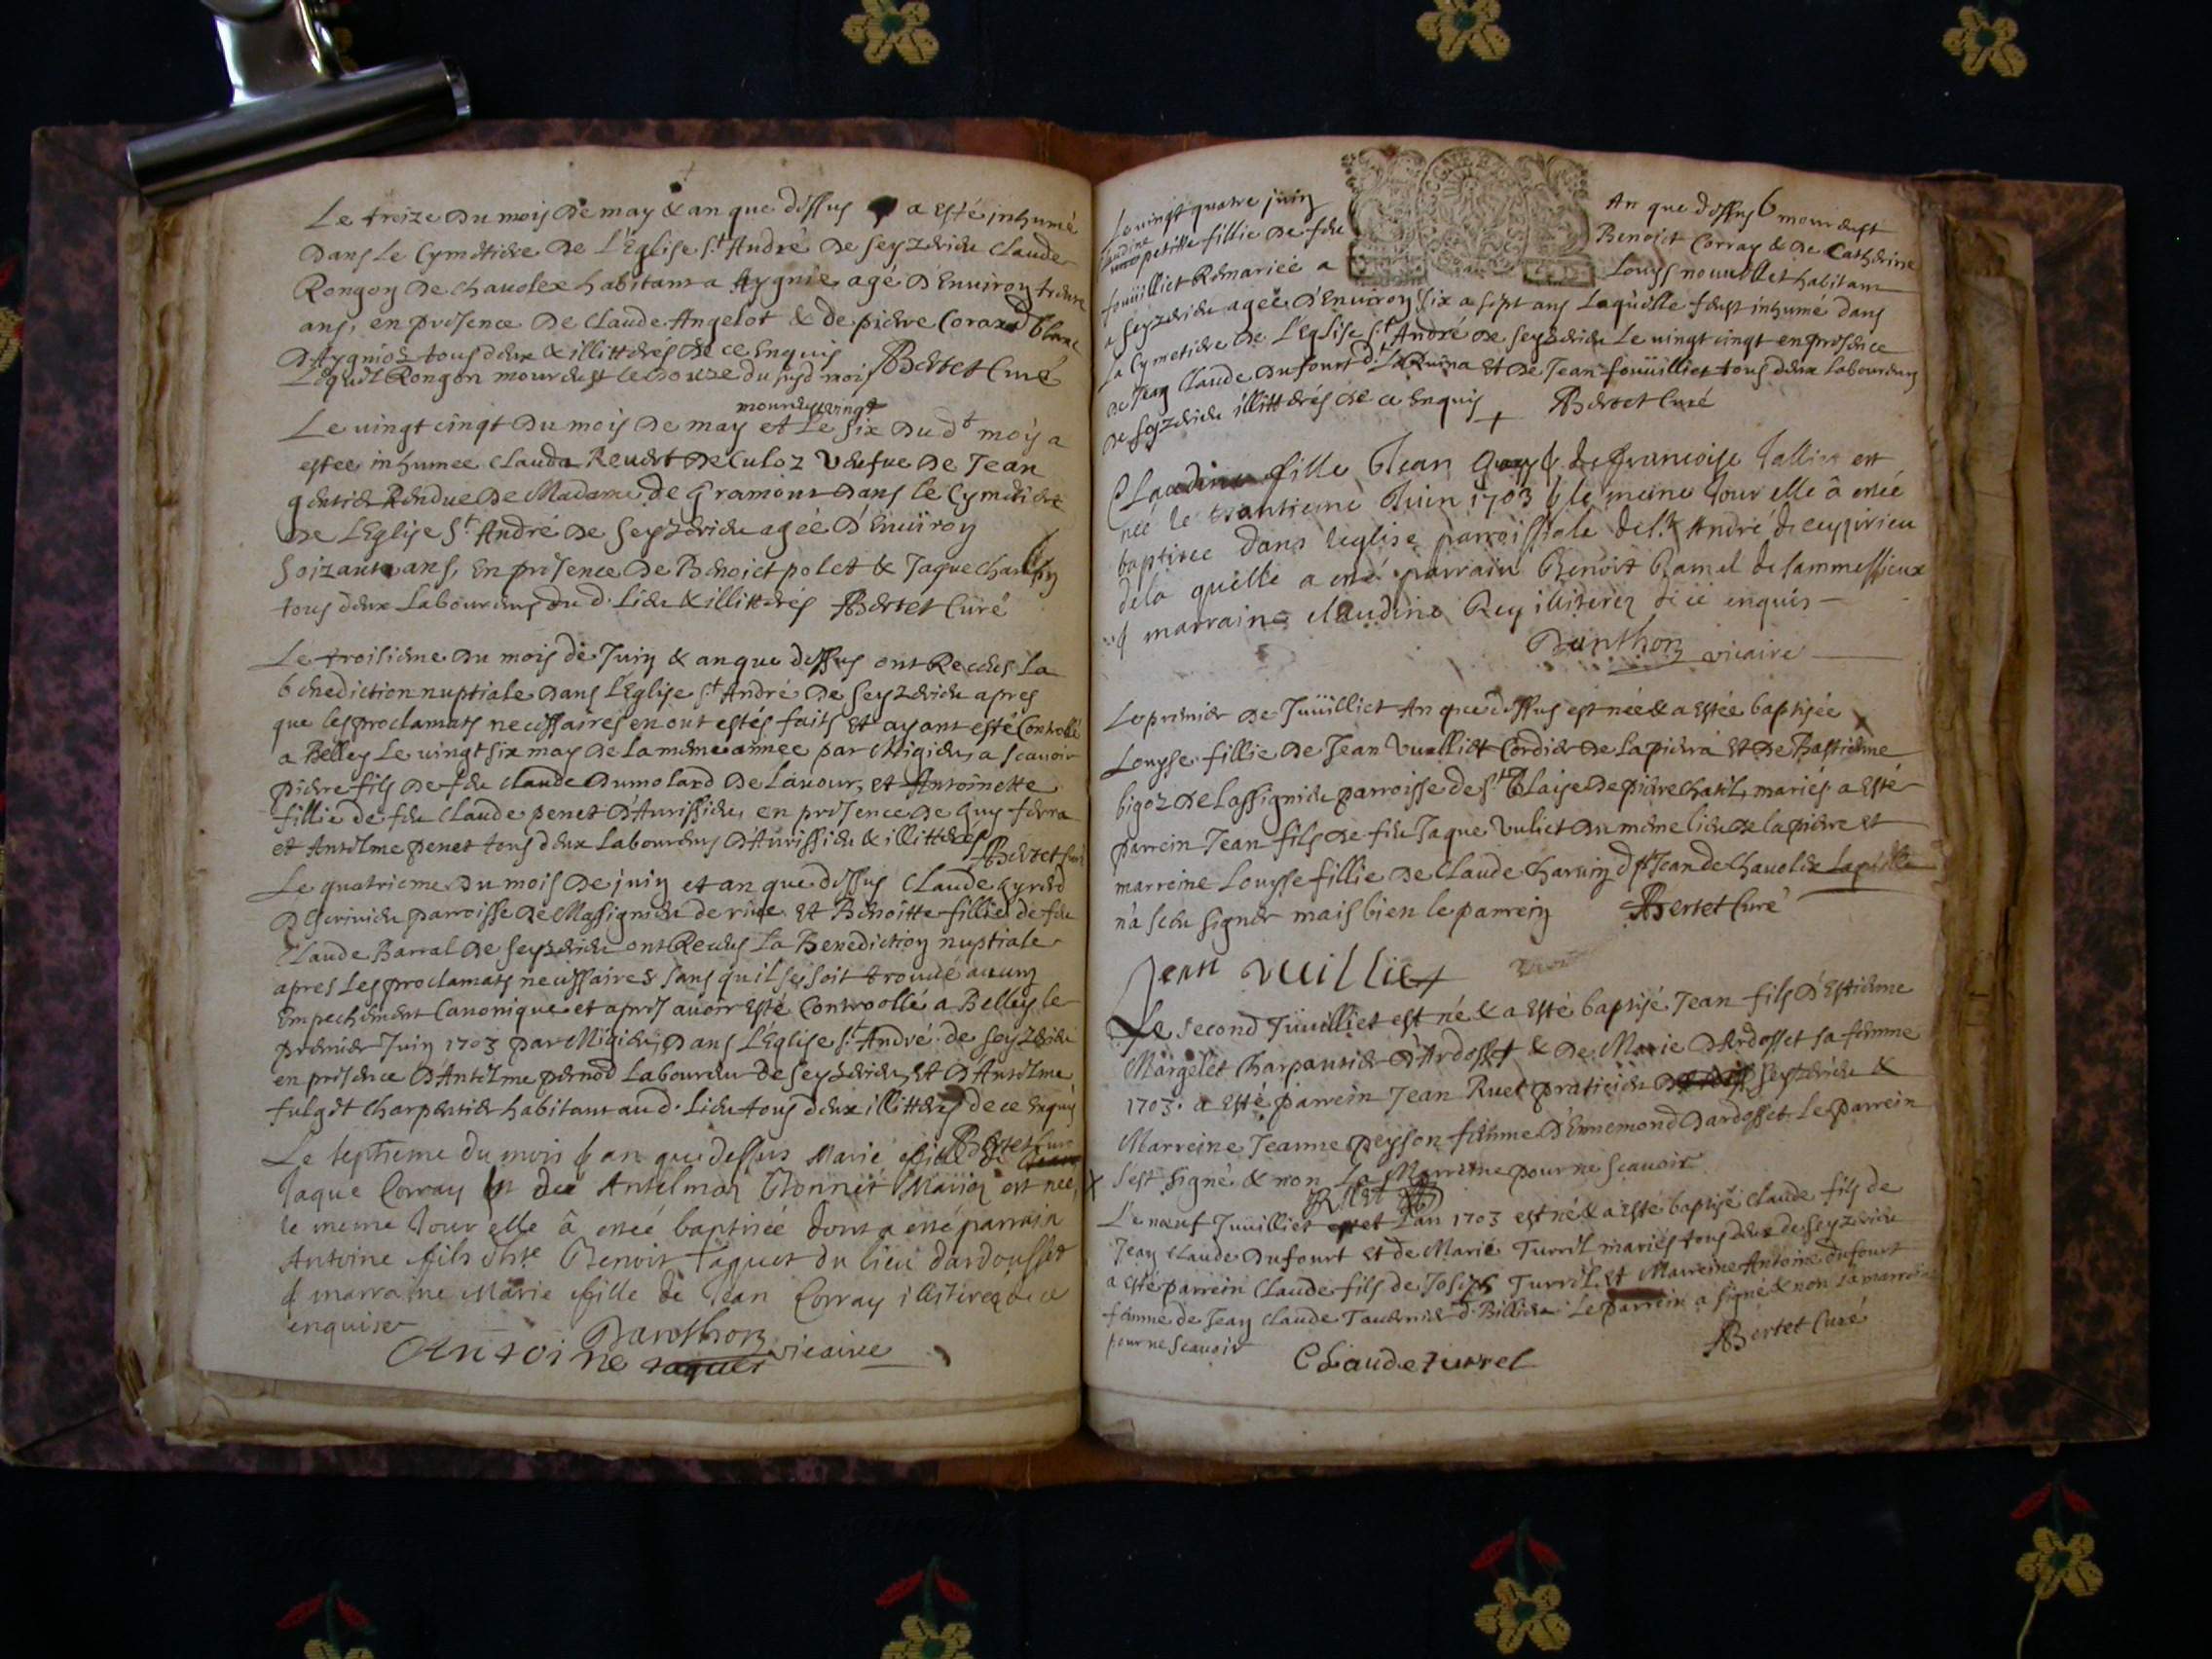 Le treize du mois de may & an que dessus a esté inhumé
dans le Cymetiere de L'Eglise St André de Seyzerieu Claude
Rongon de Chavolex habitant a Aygnie agé d'Environ trente
ans, en presence de Claude Angelot & de pierre Coraz d blanc
d'Aygnioz tous deux & illitterés de ce Enquis
Lequel Rongon mourust le douze du susd mois Bertet Curé
mourust vingt
Le vingt cinqt du mois de may et Le six du dt mois a
estee inhumee Clauda Reudet de Culoz vefue de Jean
gentier Rendue de Madame de Gramont dans le Cymetiere
de L'Eglise St André de Seyzerieu agée d'Enuiron
soizante ans, En presence de Benoict polet & Jaque
tous deux Laboureurs du d. Lieu & illitterés Bertet Curé
Le troisieme du mois de Juin & an que dessus ont Receus La
benediction nuptiale dans L'Eglise St André de Seyzerieu apres
que les proclamats necessaires en ont estés faits Et ayant esté Controllé
a Belley Le vingt six may de La meme annee par Migieu, a scavoir
pierre fils de feu Claude Dumolard de Lavour, et Antoinette
fillie de feu Claude penet d'Aurissieu, en presence de Guy ferra
et Antelme penet tous deux Laboureurs d'Aurissieu & illitterés Bertet Curé
Le quatrieme du mois de juin et an que dessus Claude
d'Escrivieu parroisse de Massignieu de rive Et Benoitte fillie de feu
Claude Barral de Seyzerieu ont Receus La Benediction nuptiale
apres Les proclamats necessaires sans qu'il se soit trouué aucun
Empechement Canonique et apres auoir Esté Controollé a Belley le
premier Juin 1703 par Migieu, dans L'Eglise St André de Seyzerieu
en presence d'Antelme pernod Laboureur de Seyzerieu, Et d'Antelme
fulget Charpentier habitant au d. Lieu tous deux illitterés de ce Enquis
Bertet Curé
Le septieme du mois & an que dessus Marie fille de
Jaque Corray & de Antelmaz est née,
le meme Jour elle â eteé baptisée dont a eté parrain
Antoine fils Benoit Taquet du lieu dardousset
& marraine Marie fille de Jean Corray illiterez de ce
enquise
Danthon vicaire
Antoine taquet
Le vingt quatre juin An que dessus mourust
Claudine petitte fillie de feu Benoict Corray & de Catherine
fouïilliet Remariée a Louys nouuellet habitant
a Seyzerieu agée d'Enuiron six a sept ans Laquelle feust inhumé dans
La Cymetiere de L'Eglise St André de Seyzerieu Le vingt cinqt en presence
de Jean Claude dufourt dt La Ruina Et de Jean fouïilliet tous deux Laboureurs
de Seyzerieu illitterés de ce Enquis Bertet Curé
Claudine fille Jean & de francoise Jallier est
neé le trantieme Juin 1703 & le meme Jour elle â eteé
baptisee dans leglise parroissiale de St André de ceyzirieu
de la quelle a eté parrain Benoit Ramel de Sammessieux
& marraine Claudine Rey illiterez de ce enquis
Danthon vicaire
Le premier de Juïilliet An que dessus est née & a Estée baptisée
Louyse fillie de Jean Vuilliet Cordier de La pierra Et de Bastienne
bigoz de Lassignieu parroisse de St Blaise de pierre Chatil, mariés a Esté
parrein Jean fils de feu Jaque Vuliet du meme lieu de la pierre Et
marreine Louysse fillie de Claude Charuin dt St Jean de Chavolex Laquelle
n'a sceu signer mais bien le parrein Bertet Curé
Jean Vuilliet
Le second Juïilliet est né & a Esté baptisé Jean fils d'Estienne
Margelet Charpantier d'Ardosset & de Marie d'Ardosset sa femme
1703. a Esté parrein Jean Ruet praticien Seyzerieu &
Marreine Jeanne peyson femme d'Ennemond Dardosset Le parrein
s'est signé & non La Marreine pour ne scauoir
Ruet
Le nœuf Juïilliet Lan 1703 est né & a Esté baptisé Claude fils de
Jean Claude Dufourt Et de Marie Turril mariés tous deux de Seyzerieu
a Esté parrein Claude fils de Joseph Turril Et Marreine Antoine dufourt
femme de Jean Claude Tauernier d. Billieu Le parrein a signé & non La marreine
pour ne scauoir Bertet Curé
Claude turrel